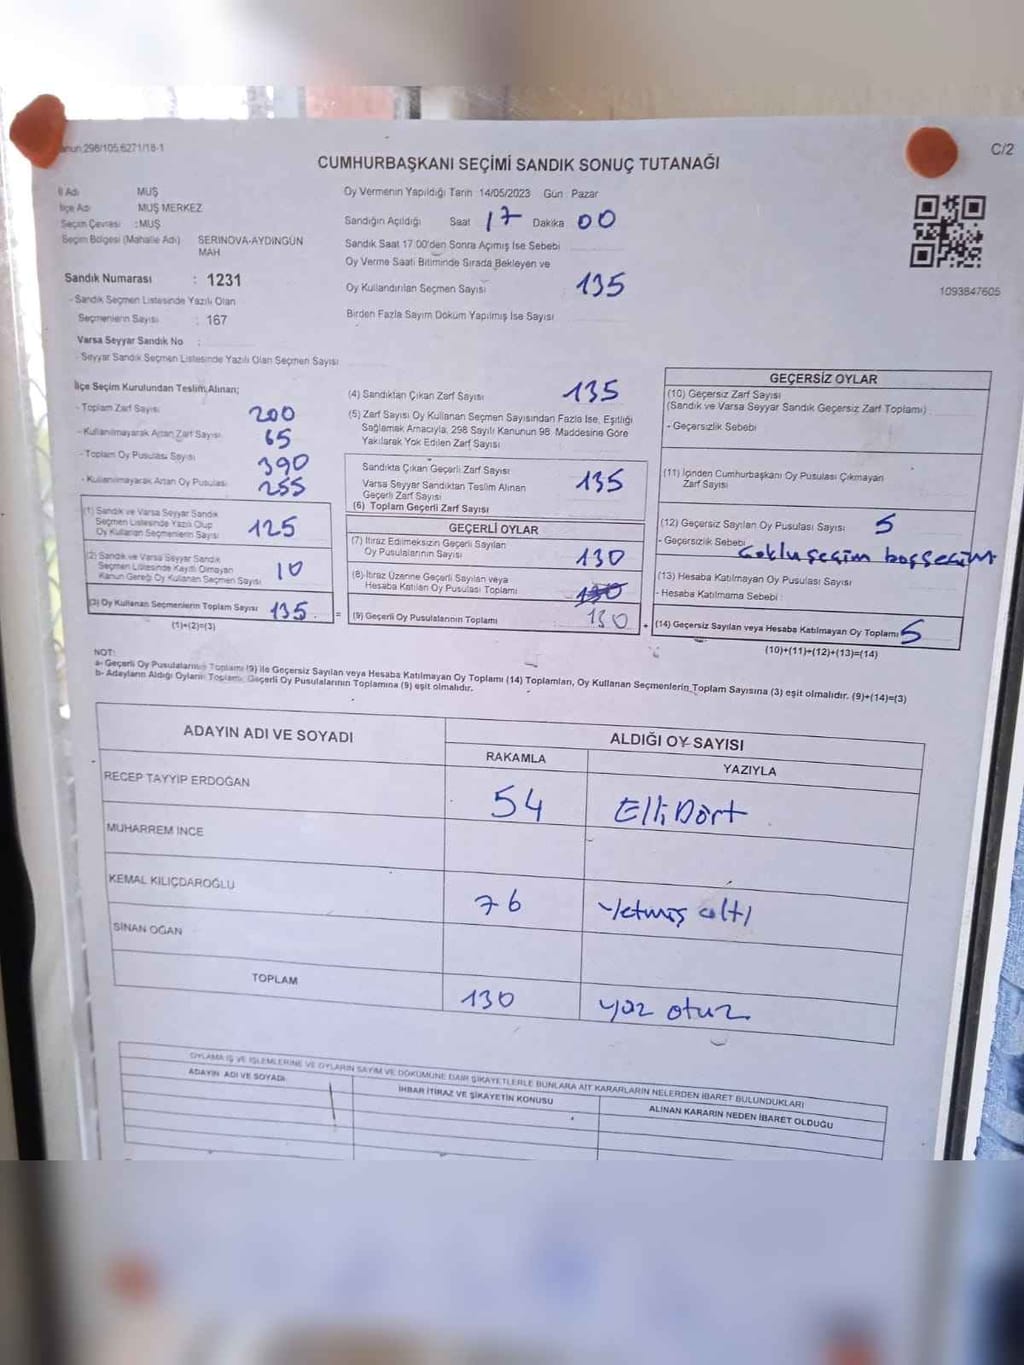 Kanun:298/105,6271/18-1
C/2
CUMHURBAŞKANI SEÇİMİ SANDIK SONUÇ TUTANAĞI
İl Adı MUŞ
İlçe Adı MUŞ MERKEZ
Seçim Çevresi : MUŞ
Seçim Bölgesi (Mahalle Adı) SERINOVA-AYDINGÜN MAH
Sandık Numarası : 1231
- Sandık Seçmen Listesinde Yazılı Olan
Seçmenlerin Sayısı : 167
Varsa Seyyar Sandık No :
- Seyyar Sandık Seçmen Listesinde Yazılı Olan Seçmen Sayısı
Oy Vermenin Yapıldığı Tarih 14/05/2023 Gün Pazar
Sandığın Açıldığı Saat 17 Dakika 00
Sandık Saat 17:00'den Sonra Açımış İse Sebebi
Oy Verme Saati Bitiminde Sırada Bekleyen ve
Oy Kullandırılan Seçmen Sayısı 135
Birden Fazla Sayım Döküm Yapılmış İse Sayısı
1093847605
İlçe Seçim Kurulundan Teslim Alınan;
- Toplam Zarf Sayısı 200
- Kullanılmayarak Artan Zarf Sayısı 65
- Toplam Oy Pusulası Sayısı 390
- Kullanılmayarak Artan Oy Pusulası 255
(1) Sandık ve Varsa Seyyar Sandık
Seçmen Listesinde Yazılı Olup
Oy Kullanan Seçmenlerin Sayısı 125
(2) Sandık ve Varsa Seyyar Sandık
Seçmen Listesinde Kayıtlı Olmayan
Kanun Gereği Oy Kullanan Seçmen Sayısı 10
(3) Oy Kullanan Seçmenlerin Toplam Sayısı 135 =
(1)+(2)=(3)
(4) Sandıktan Çıkan Zarf Sayısı 135
(5) Zarf Sayısı Oy Kullanan Seçmen Sayısından Fazla İse, Eşitliği
Sağlamak Amacıyla, 298 Sayılı Kanunun 98. Maddesine Göre
Yakılarak Yok Edilen Zarf Sayısı
Sandıkta Çıkan Geçerli Zarf Sayısı
Varsa Seyyar Sandıktan Teslim Alınan
Geçerli Zarf Sayısı
(6) Toplam Geçerli Zarf Sayısı 135
GEÇERLİ OYLAR
(7) İtiraz Edilmeksizin Geçerli Sayılan
Oy Pusulalarının Sayısı 130
(8) İtiraz Üzerine Geçerli Sayılan veya
Hesaba Katılan Oy Pusulası Toplamı
(9) Geçerli Oy Pusulalarının Toplamı 130 +
GEÇERSİZ OYLAR
(10) Geçersiz Zarf Sayısı
(Sandık ve Varsa Seyyar Sandık Geçersiz Zarf Toplamı)
- Geçersizlik Sebebi
(11) İçinden Cumhurbaşkanı Oy Pusulası Çıkmayan
Zarf Sayısı
(12) Geçersiz Sayılan Oy Pusulası Sayısı 5
- Geçersizlik Sebebi Çoklu seçim boş seçim
(13) Hesaba Katılmayan Oy Pusulası Sayısı
- Hesaba Katılmama Sebebi
(14) Geçersiz Sayılan veya Hesaba Katılmayan Oy Toplamı 5
(10)+(11)+(12)+(13)=(14)
NOT:
a- Geçerli Oy Pusulalarının Toplamı (9) ile Geçersiz Sayılan veya Hesaba Katılmayan Oy Toplamı (14) Toplamları, Oy Kullanan Seçmenlerin Toplam Sayısına (3) eşit olmalıdır. (9)+(14)=(3)
b- Adayların Aldığı Oyların Toplamı, Geçerli Oy Pusulalarının Toplamına (9) eşit olmalıdır.
ADAYIN ADI VE SOYADI
ALDIĞI OY SAYISI
RAKAMLA YAZIYLA
RECEP TAYYİP ERDOĞAN 54 Elli Dört
MUHARREM İNCE
KEMAL KILIÇDAROĞLU 76 Yetmiş altı
SİNAN OĞAN
TOPLAM 130 yüz otuz
OYLAMA İŞ VE İŞLEMLERİNE VE OYLARIN SAYIM VE DÖKÜMÜNE DAİR ŞİKAYETLERLE BUNLARA AİT KARARLARIN NELERDEN İBARET BULUNDUKLARI
ADAYIN ADI VE SOYADI İHBAR İTİRAZ VE ŞİKAYETİN KONUSU ALINAN KARARIN NEDEN İBARET OLDUĞU